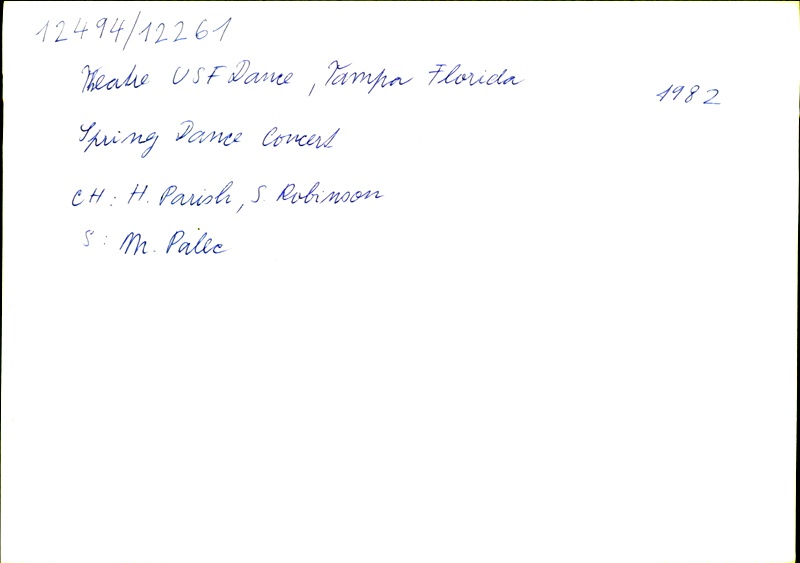 12494/12261
Theatre USF Dance, Tampa Florida
1982
Spring Dance Concert
CH: H. Parish, S. Robinson
S: M. Palec